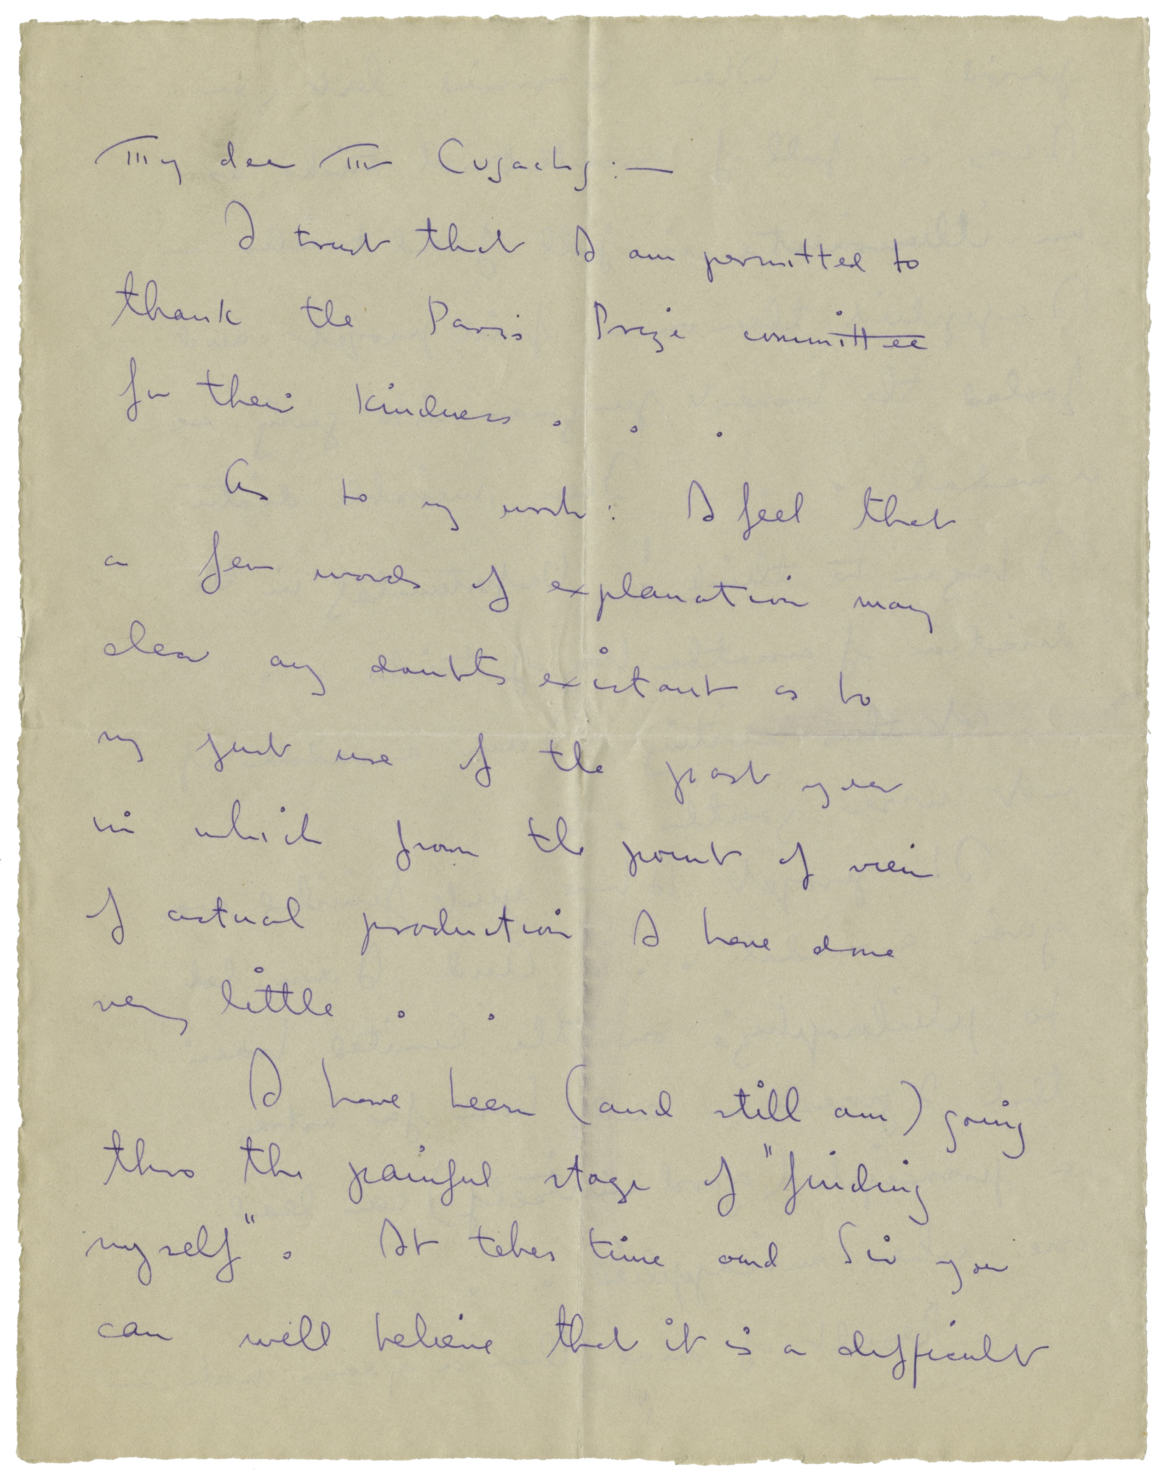 My dear Mr Cugachy:—
I trust that I am permitted to
thank the Paris Prize committee
for their kindness . . .
As to my work: I feel that
a few words of explanation may
clear any doubts existant as to
my just use of the past year
in which from the point of view
of actual production I have done
very little . .
I have been (and still am) going
thro the painful stage of "finding
myself". It takes time and Sir you
can well believe that it is a difficult